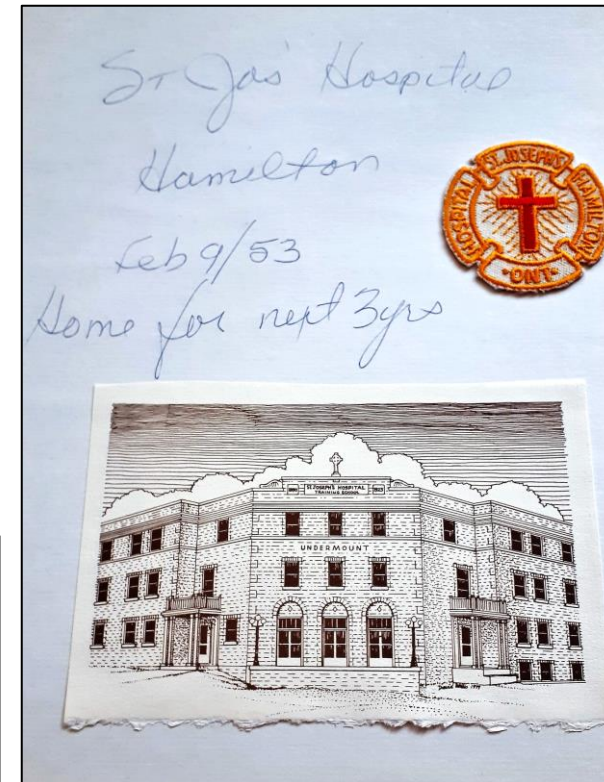 St Jos' Hospital
Hamilton
Feb 9/53
Home for next 3yrs
ST. JOSEPH'S
HOSPITAL
HAMILTON
·ONT·
ST. JOSEPH'S HOSPITAL
TRAINING SCHOOL
UNDERMOUNT